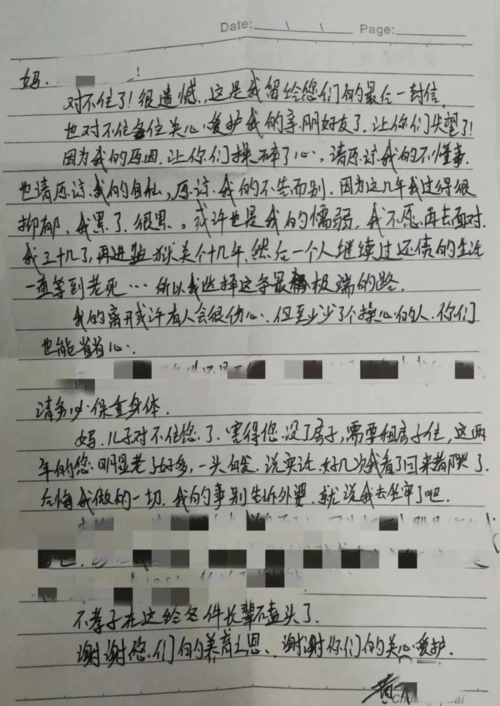 Date: \ \ Page:
妈.!
对不住了!很遗憾,这是我留给您们的最后一封信,
也对不住每位关心.爱护我的亲朋好友了.让你们失望了!
因为我的原因.让你们操碎了心.请原谅我的不懂事.
也请原谅.我的自私,原谅.我的不告而别.因为这几年我过得很
抑郁.我累了.很累.或许也是我的懦弱.我不愿再去面对.
我三十几了,再进监狱关个十几年.然后一个人继续过还债的生活
一直等到老死…所以我选择这条最极端的路.
我的离开或许有人会很伤心.但至少少了个操心的人.你们
也能省省心.
请多以保重身体.
妈.儿子对不住您了.害得您.没了房子,需要租房子住,这两
年的您.明显老了好多,一头白发.说实话.好几次我看了回来都哭了.
后悔我做的一切.我的事别告诉外婆.就说我去坐牢了吧.
不孝子在这给各位长辈不磕头了.
谢谢您.们的养育之恩、谢谢你们的关心爱护.
黄